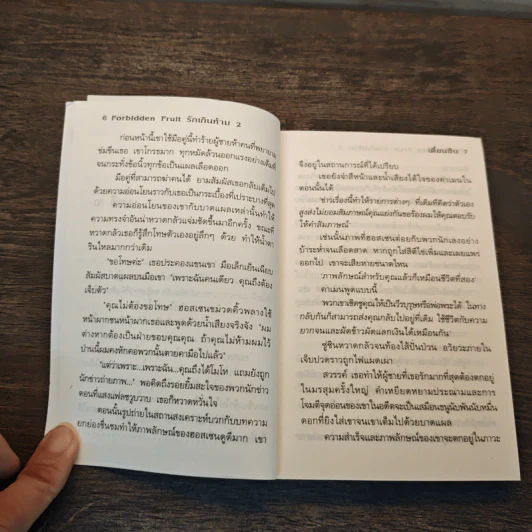 6 Forbidden Fruit รักเกินห้าม 2
ก่อนหน้านี้เขาใช้มือคู่นี้ทำร้ายผู้ชายห้าคนที่พยายาม
ข่มขืนเธอ เขาโกรธมาก ทุกหมัดล้วนออกแรงอย่างเต็มที่
จนกระทั่งข้อนิ้วทุกข้อเป็นแผลเลือดออก
มือคู่ที่สามารถฆ่าคนได้ ยามสัมผัสเธอกลับเต็มไป
ด้วยความอ่อนโยนราวกับเธอเป็นกระเบื้องที่เปราะบางที่สุด
ความอ่อนโยนของเขากับบาดแผลเหล่านั้นทำให้
ความทรงจำอันน่าหวาดกลัวแจ่มชัดขึ้นมาอีกครั้ง ขณะที่
หวาดกลัวเธอก็รู้สึกโทษตัวเองอยู่ลึกๆ ด้วย ทำให้น้ำตา
รินไหลมากกว่าเดิม
'ขอโทษค่ะ' เธอประคองแขนเขา มือเล็กเย็นเฉียบ
สัมผัสบาดแผลบนมือเขา 'เพราะฉันคนเดียว คุณถึงต้อง
เจ็บตัว'
'คุณไม่ต้องขอโทษ' ฮอสเซนขมวดคิ้วพลางใช้
หน้าผากชนหน้าผากเธอและพูดด้วยน้ำเสียงจริงจัง 'ผม
ต่างหากต้องเป็นฝ่ายขอบคุณคุณ ถ้าคุณไม่ห้ามผมไว้
ป่านนี้ผมคงหักคอพวกนั้นตายคามือไปแล้ว'
'แต่ว่าเพราะ...เพราะฉัน...คุณถึงได้โมโห แถมยังถูก
นักข่าวถ่ายภาพ...' พอคิดถึงรอยยิ้มสะใจของพวกนักข่าว
ตอนที่แสงแฟลชวูบวาบ เธอก็หวาดหวั่นใจ
ตอนนั้นรูปถ่ายในสถานสงเคราะห์บวกกับบทความ
ยกย่องชื่นชมทำให้ภาพลักษณ์ของฮอสเซนดูดีมาก เขา
เตี่ยนซิน 7
จึงอยู่ในสถานการณ์ที่ได้เปรียบ
เธอยังจำสีหน้าและน้ำเสียงได้ใจของคาเมนใน
ตอนนั้นได้
'ข่าวเรื่องนี้ทำให้รายการต่างๆ ที่เดิมทีคิดว่าตัวเอง
สูงส่งไม่ยอมสัมภาษณ์คุณแย่งกันขอร้องผมให้คุณตอบรับ
ให้คำสัมภาษณ์'
เช่นนั้นภาพที่ฮอสเซนต่อยกับพวกนักเลงอย่าง
บ้าระห่ำจนเลือดสาด หากถูกใส่สีตีไข่เพิ่มและเผยแพร่
ออกไป เขาจะเสียหายขนาดไหน
'ภาพลักษณ์สำหรับคุณแล้วก็เหมือนชีวิตที่สอง'
คาเมนพูดแบบนี้
'พวกเขาเชิดชูคุณให้เป็นวีรบุรุษหรือพ่อพระได้ ในทาง
กลับกันก็สามารถส่งคุณกลับไปอยู่ที่เดิม ใช้ชีวิตกับความ
ยากจนและผัดข้าวผัดแลกเงินได้เหมือนกัน'
ซูซินหวาดกลัวจนท้องไส้ปั่นป่วน อวัยวะภายใน
เจ็บปวดราวถูกไฟแผดเผา
สวรรค์ เธอทำให้ผู้ชายที่เธอรักมากที่สุดต้องตกอยู่
ในมรสุมครั้งใหญ่ คำเหยียดหยามประณามและการ
โจมตีจุดอ่อนของเขาในอดีตจะเป็นเสมือนธนูนับพันนับหมื่น
ดอกที่ยิงใส่เขาจนเขาเต็มไปด้วยบาดแผล
ความสำเร็จและภาพลักษณ์ของเขาจะตกอยู่ในภาวะ